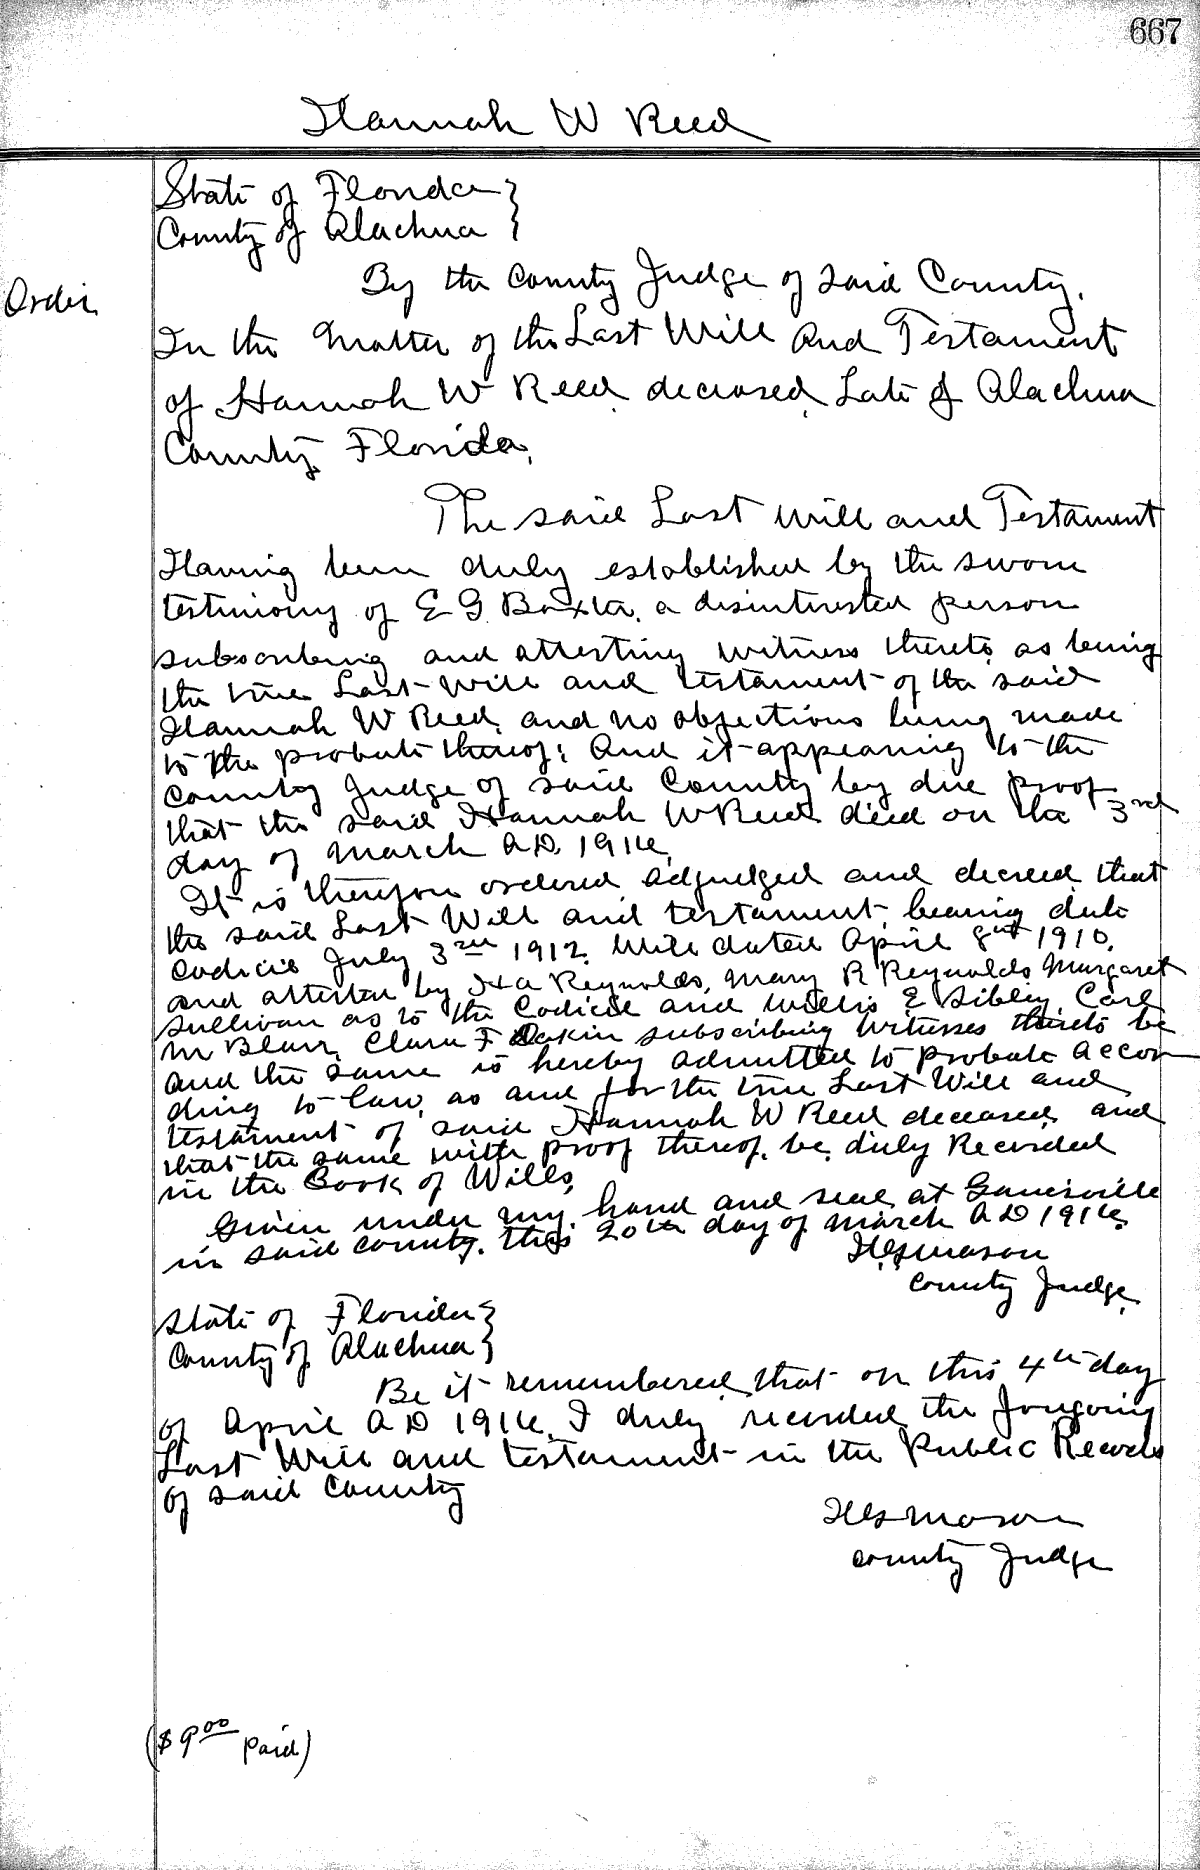 667
Hannah W Reed
State of Florida }
County of Alachua }
Order
By the County Judge of said County.
In the Matter of the Last Will and Testament
of Hannah W Reed, deceased, Late of Alachua
County, Florida,
The said Last Will and Testament
Having been duly established by the sworn
testimony of E G Baxter, a disinterested person
subscribing and attesting witness thereto, as being
the true Last Will and testament of the said
Hannah W Reed, and no objections being made
to the probate thereof; And it appearing to the
County Judge of said County by due proof
that the said Hannah W Reed died on the 3rd
day of March A.D. 1914,
It is therefore ordered adjudged and decreed that
the said Last Will and testament, bearing date
Codicil July 3rd 1912. Will dated April 8th 1910.
and attested by H A Reynolds, Mary R Reynolds, Margaret
Sullivan as to the Codicil and Willis E Sibley, Carl
M Blair, Clara F Dakin subscribing witnesses thereto be
and the same is hereby admitted to probate accor
ding to law, as and for the true Last Will and
testament of said Hannah W Reed deceased, and
that the same with proof thereof, be, duly Recorded
in the Book of Wills,
Given under my hand and seal at Gainesville
in said county. this 20th day of March A D 1914,
H.G. Mason
County Judge,
State of Florida }
County of Alachua }
Be it remembered, that on this 4th day
of April A D 1914, I duly recorded the forgoing
Last Will and testament in the Public Records
of said County
H G Mason
County Judge
($9.00 paid)